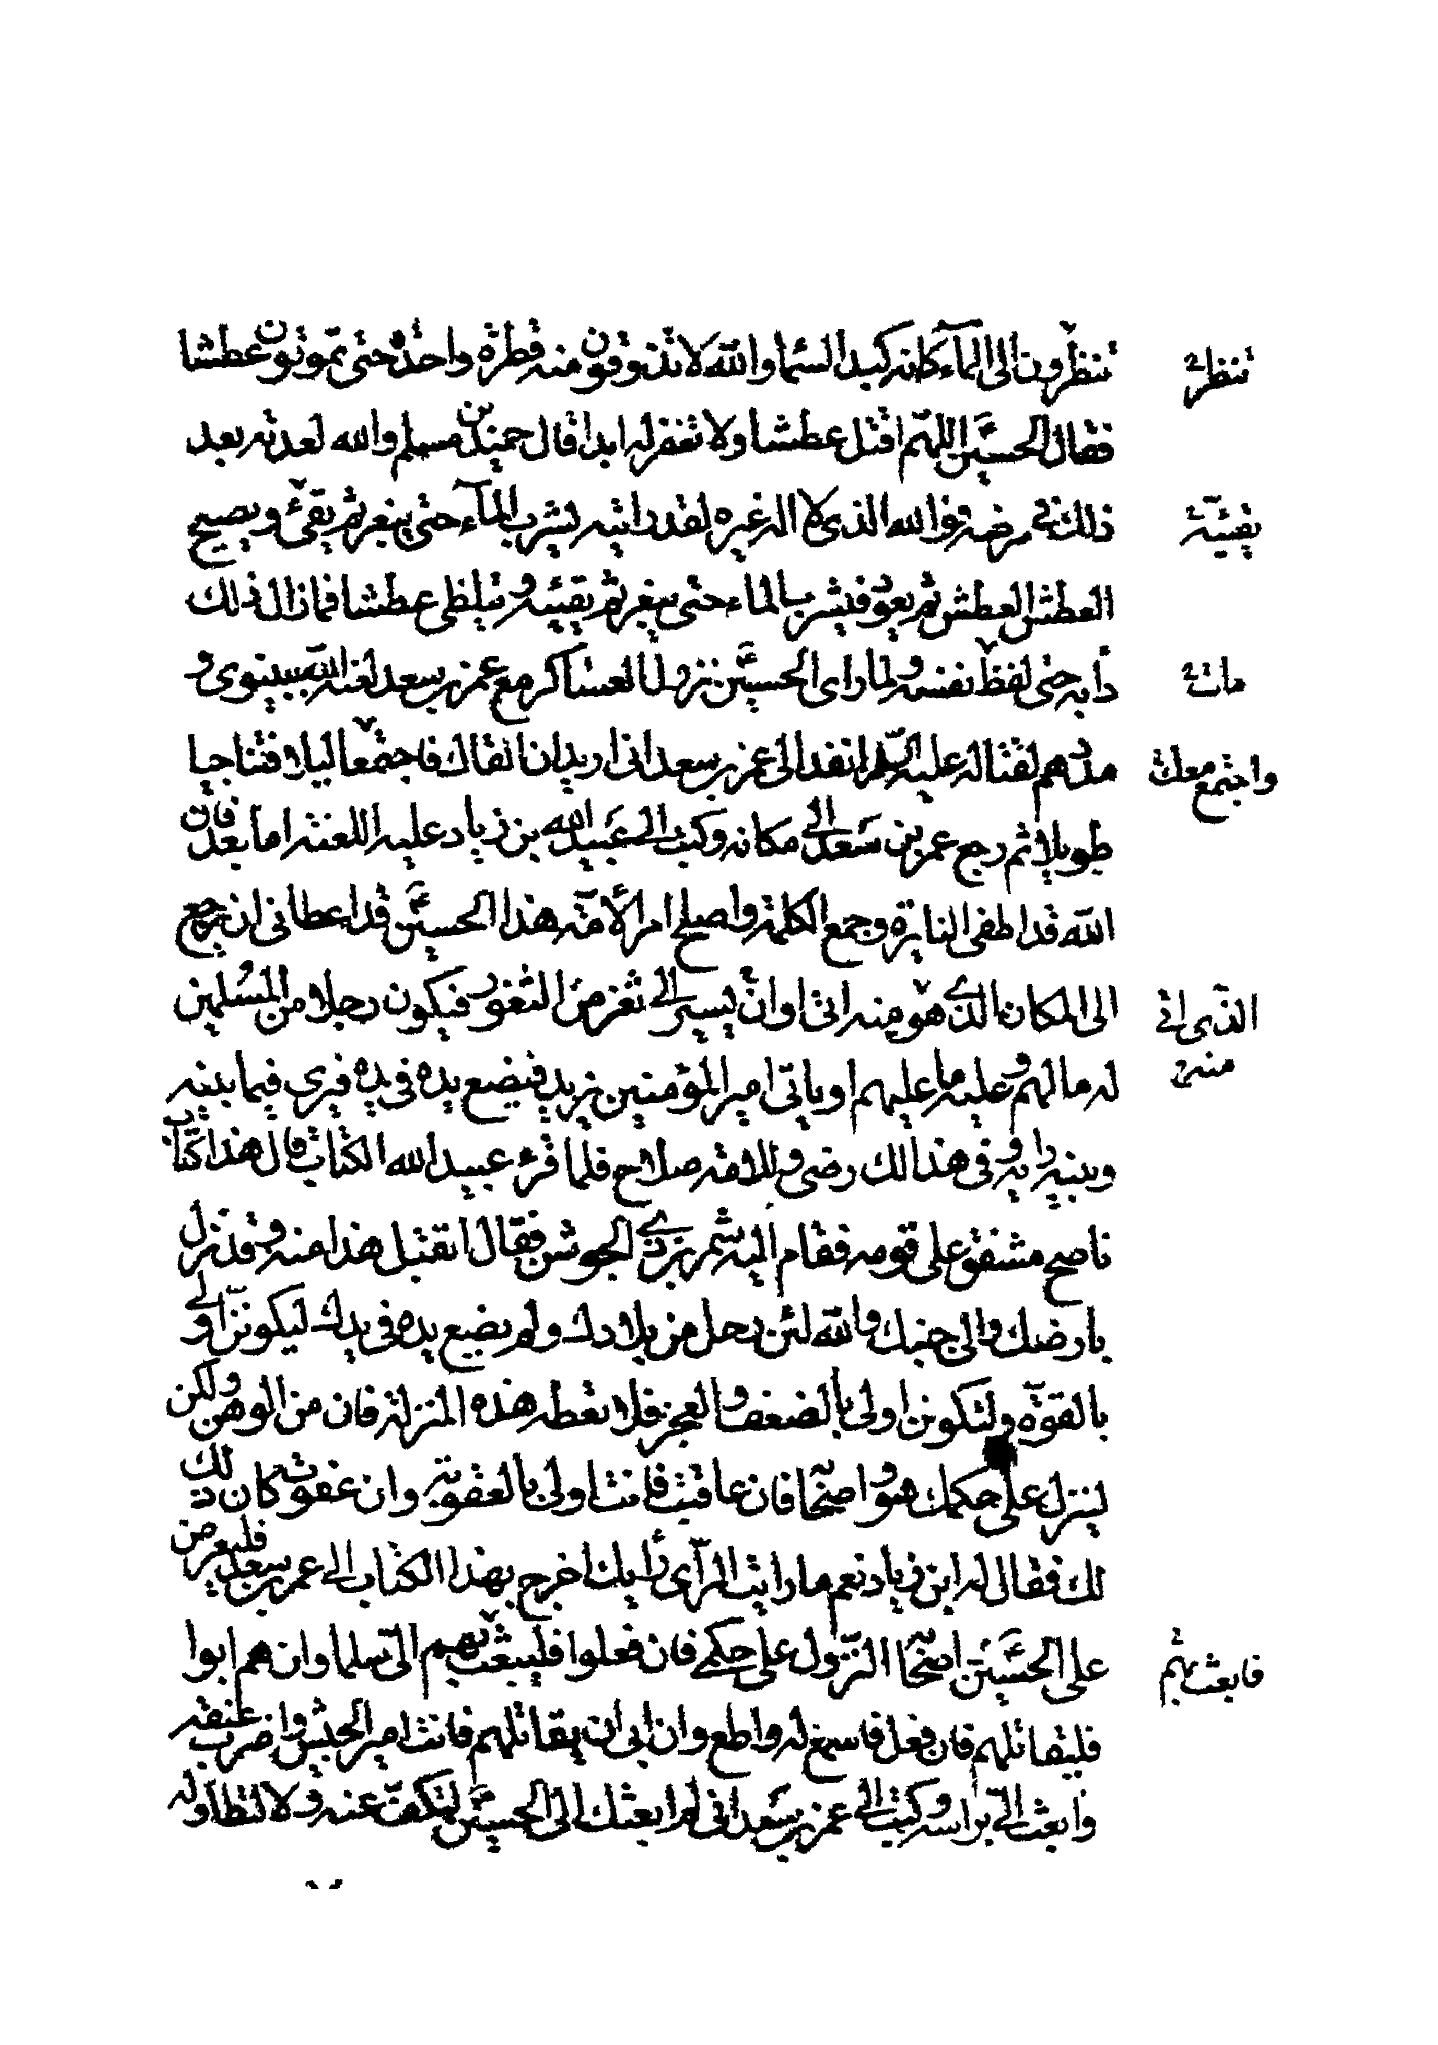 تنظرون الى المآء كانه كبد السما والله لا تذوقون منه قطرة واحدة حتى تموتون عطشا
تنظر
فقال الحسين اللهم اقتل عطشا ولا تغفر له ابدا قال حميد بن مسلم والله لعدته بعد
ذلك في مرضه فوالله الذى لا اله غيره لقد رايته يشرب المآء حتى يبغر ثم يقئ ويصيح
يقيئه
العطش العطش ثم يعود فيشرب الماء حتى يبغر ثم يقيئه ويتلظى عطشا فمازال ذلك
دابه حتى لفظ نفسه ولما راى الحسين نزول العساكر مع عمر بن سعد لعنه الله بنينوى و
مات
مددهم لقتاله عليه السلم انفد الى عمر بن سعد انى اريد ان القاك فاجتمعا ليلا فتناجيا
واجتمع معك
طويلا ثم رجع عمر بن سعد الى مكانه وكتب الى عبيد الله بن زياد عليه اللعنه اما بعد فان
الله قد اطفى النايرة وجمع الكلمة واصلح امر الأمة هذا الحسين قد اعطانى ان يرجع
الى المكان الذى هو منه اتى او ان يسير الى ثغر من الثغور فيكون رجلا من المسلمين
الذى اتى
منه
له ما لهم وعليه ما عليهم او ياتى امير المؤمنين يزيد فيضع يده فى يده فيرى فيما بينه
وبينه رايه وفى هذا لك رضى وللامة صلاح فلما قرء عبيد الله الكتاب قال هذا كتاب
ناصح مشفق على قومه فقام اليه شمر بن ذى الجوشن فقال اتقبل هذا منه وقد نزل
بارضك والى جنبك والله لئن رحل من بلادك ولم يضع يده فى يدك ليكونن اولى
بالقوة ولتكونن اولى بالضعف والعجز فلا تعطه هذه المنزلة فان من الوهن ولكن
لينزل على حكمك هو واصحابه فان عاقبت فانت اولى بالعقوبة وان عفوت كان ذلك
لك فقال له ابن زياد نعم ما رايت الرأى رأيك اخرج بهذا الكتاب الى عمر بن سعد فليعرض
على الحسين واصحابه النزول على حكمى فان فعلوا فليبعث بهم الى سلما وان هم ابوا
فابعث بهم
فليقاتلهم فان فعل فاسمع له واطع وان ابى ان يقاتلهم فانت امير الجيش واضرب عنقه
وابعث الى براسه وكتب الى عمر بن سعد انى لم ابعثك الى الحسين لتكف عنه ولا لتطاوله